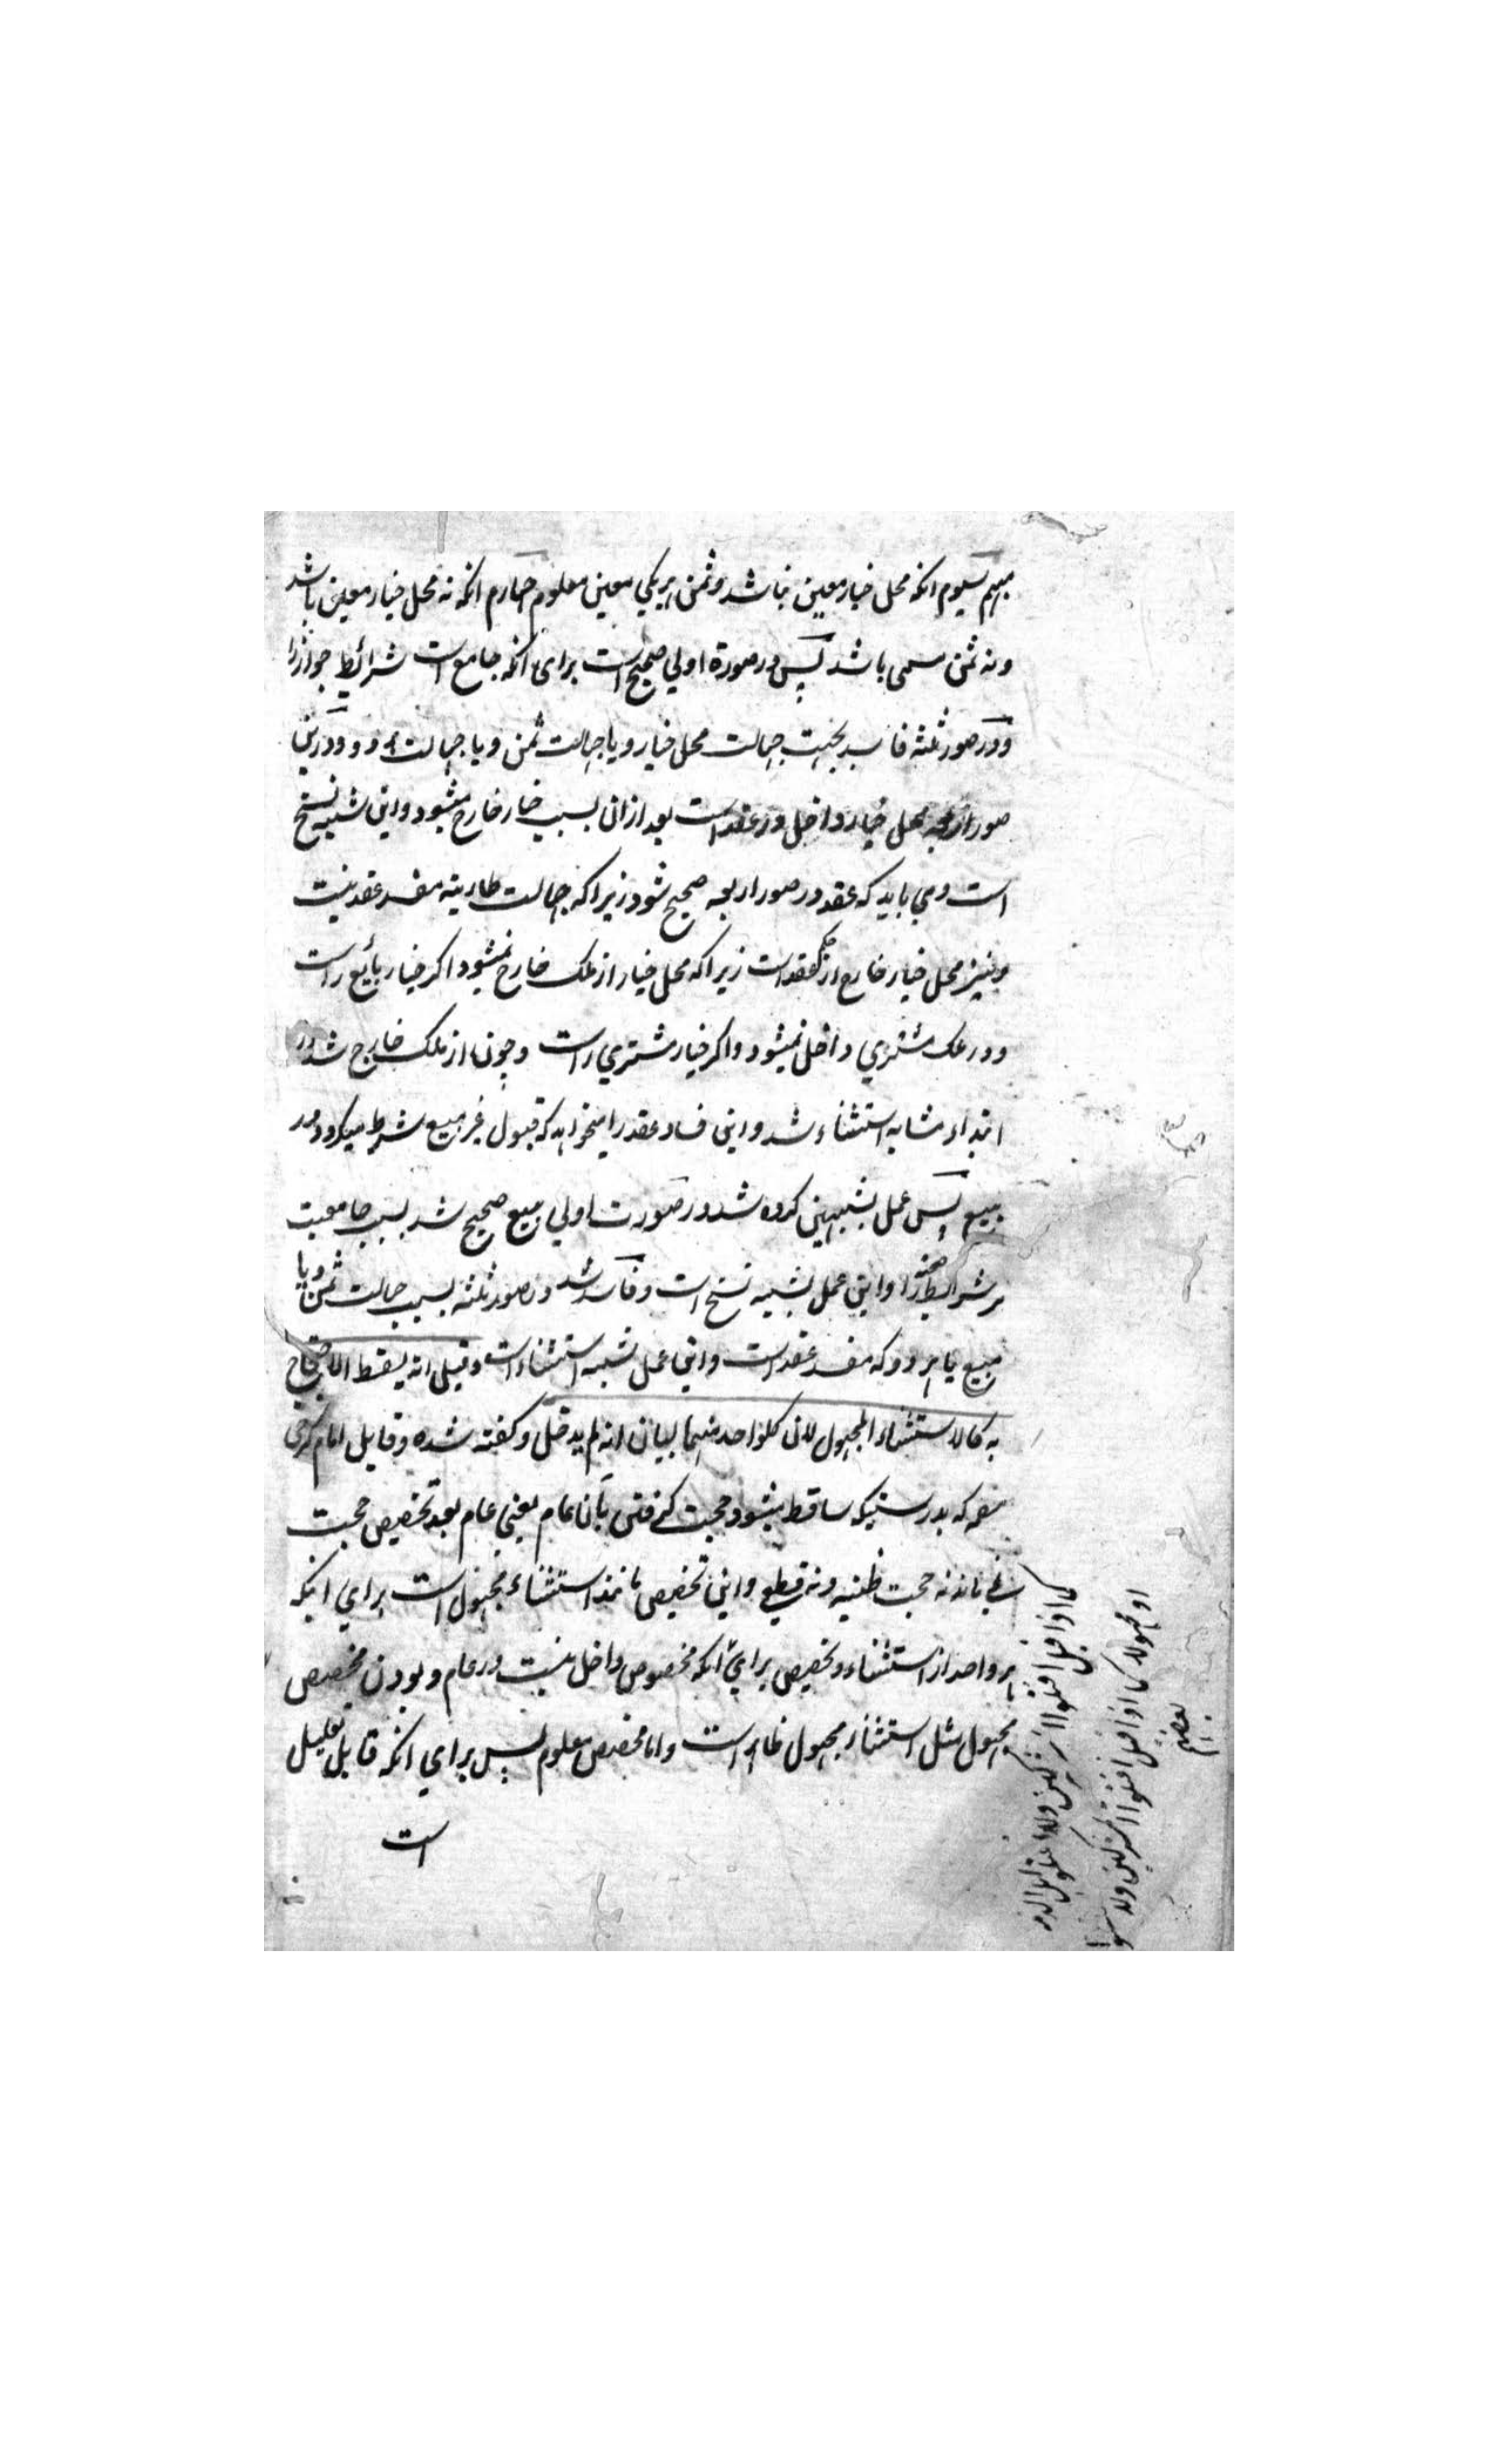 مبهم سیوم انکه محل خیار معین نباشد و ثمن هریکي معین معلوم چهارم انکه نه محل خیار معین باشد
و نه ثمن مسمی باشد پس در صورة اولي صحیح است برای انکه جامع است شرائط جواز را
و در صور ثلثه فاسد بجهت جهالت محل خیار و یا جهالت ثمن و یا جهالت هر دو و درین
صور اربعه محل خیار داخل در عقد است بعد ازان بسبب خیار خارج میشود و این شبیه نسخ
است و می باید که عقد در صور اربعه صحیح شود زیرا که جهالت طاریه مفسد عقد نیست
و نیز محل خیار خارج از حکم عقد است زیرا که محل خیار از ملک خارج نمیشود اکر خیار بائع راست
و در ملک مشتري داخل نمیشود و اکر خیار مشتري راست و چون از ملک خارج شد در
ابتداء مشابه استثناء شد و این فساد عقد را میخواهد که قبول غیر مبیع شرط میکردد در
بیع پس عمل بشبیهین کرده شد در صورت اولي بیع صحیح شد بسبب جامعیت
مر شرائط صحة را و این عمل بشبیه نسخ است و فاسد شد در صور ثلثه بسبب جهالت ثمن و یا
مبیع یا هر دو که مفسد عقد است و این عمل بشبیه استثناء است و قیل انه یسقط الاحتجاج
به کالاستثناء المجهول لان کلواحد منهما لبیان انه لم یدخل و کفته شده و قایل امام کرخي
که بدرستیکه ساقط میشود حجت کرفتن بآن عام یعني عام بعد تخصیص حجت
نمي ماند نه حجت ظنیه و نه قطعي و این تخصیص مانند استثناء مجهول است براي اینکه
هر واحد از استثناء و تخصیص براي انکه مخصوص داخل نیست در عام و بودن مخصص
مجهول مثل استثناء مجهول ظاهر است و اما مخصص معلوم پس براي انکه قابل تعلیل
است
کما اذا قیل اقتلوا المشرکین ولا تقتلوا
او مجهولا کما اذا قیل اقتلوا المشرکین ولا
بعضهم